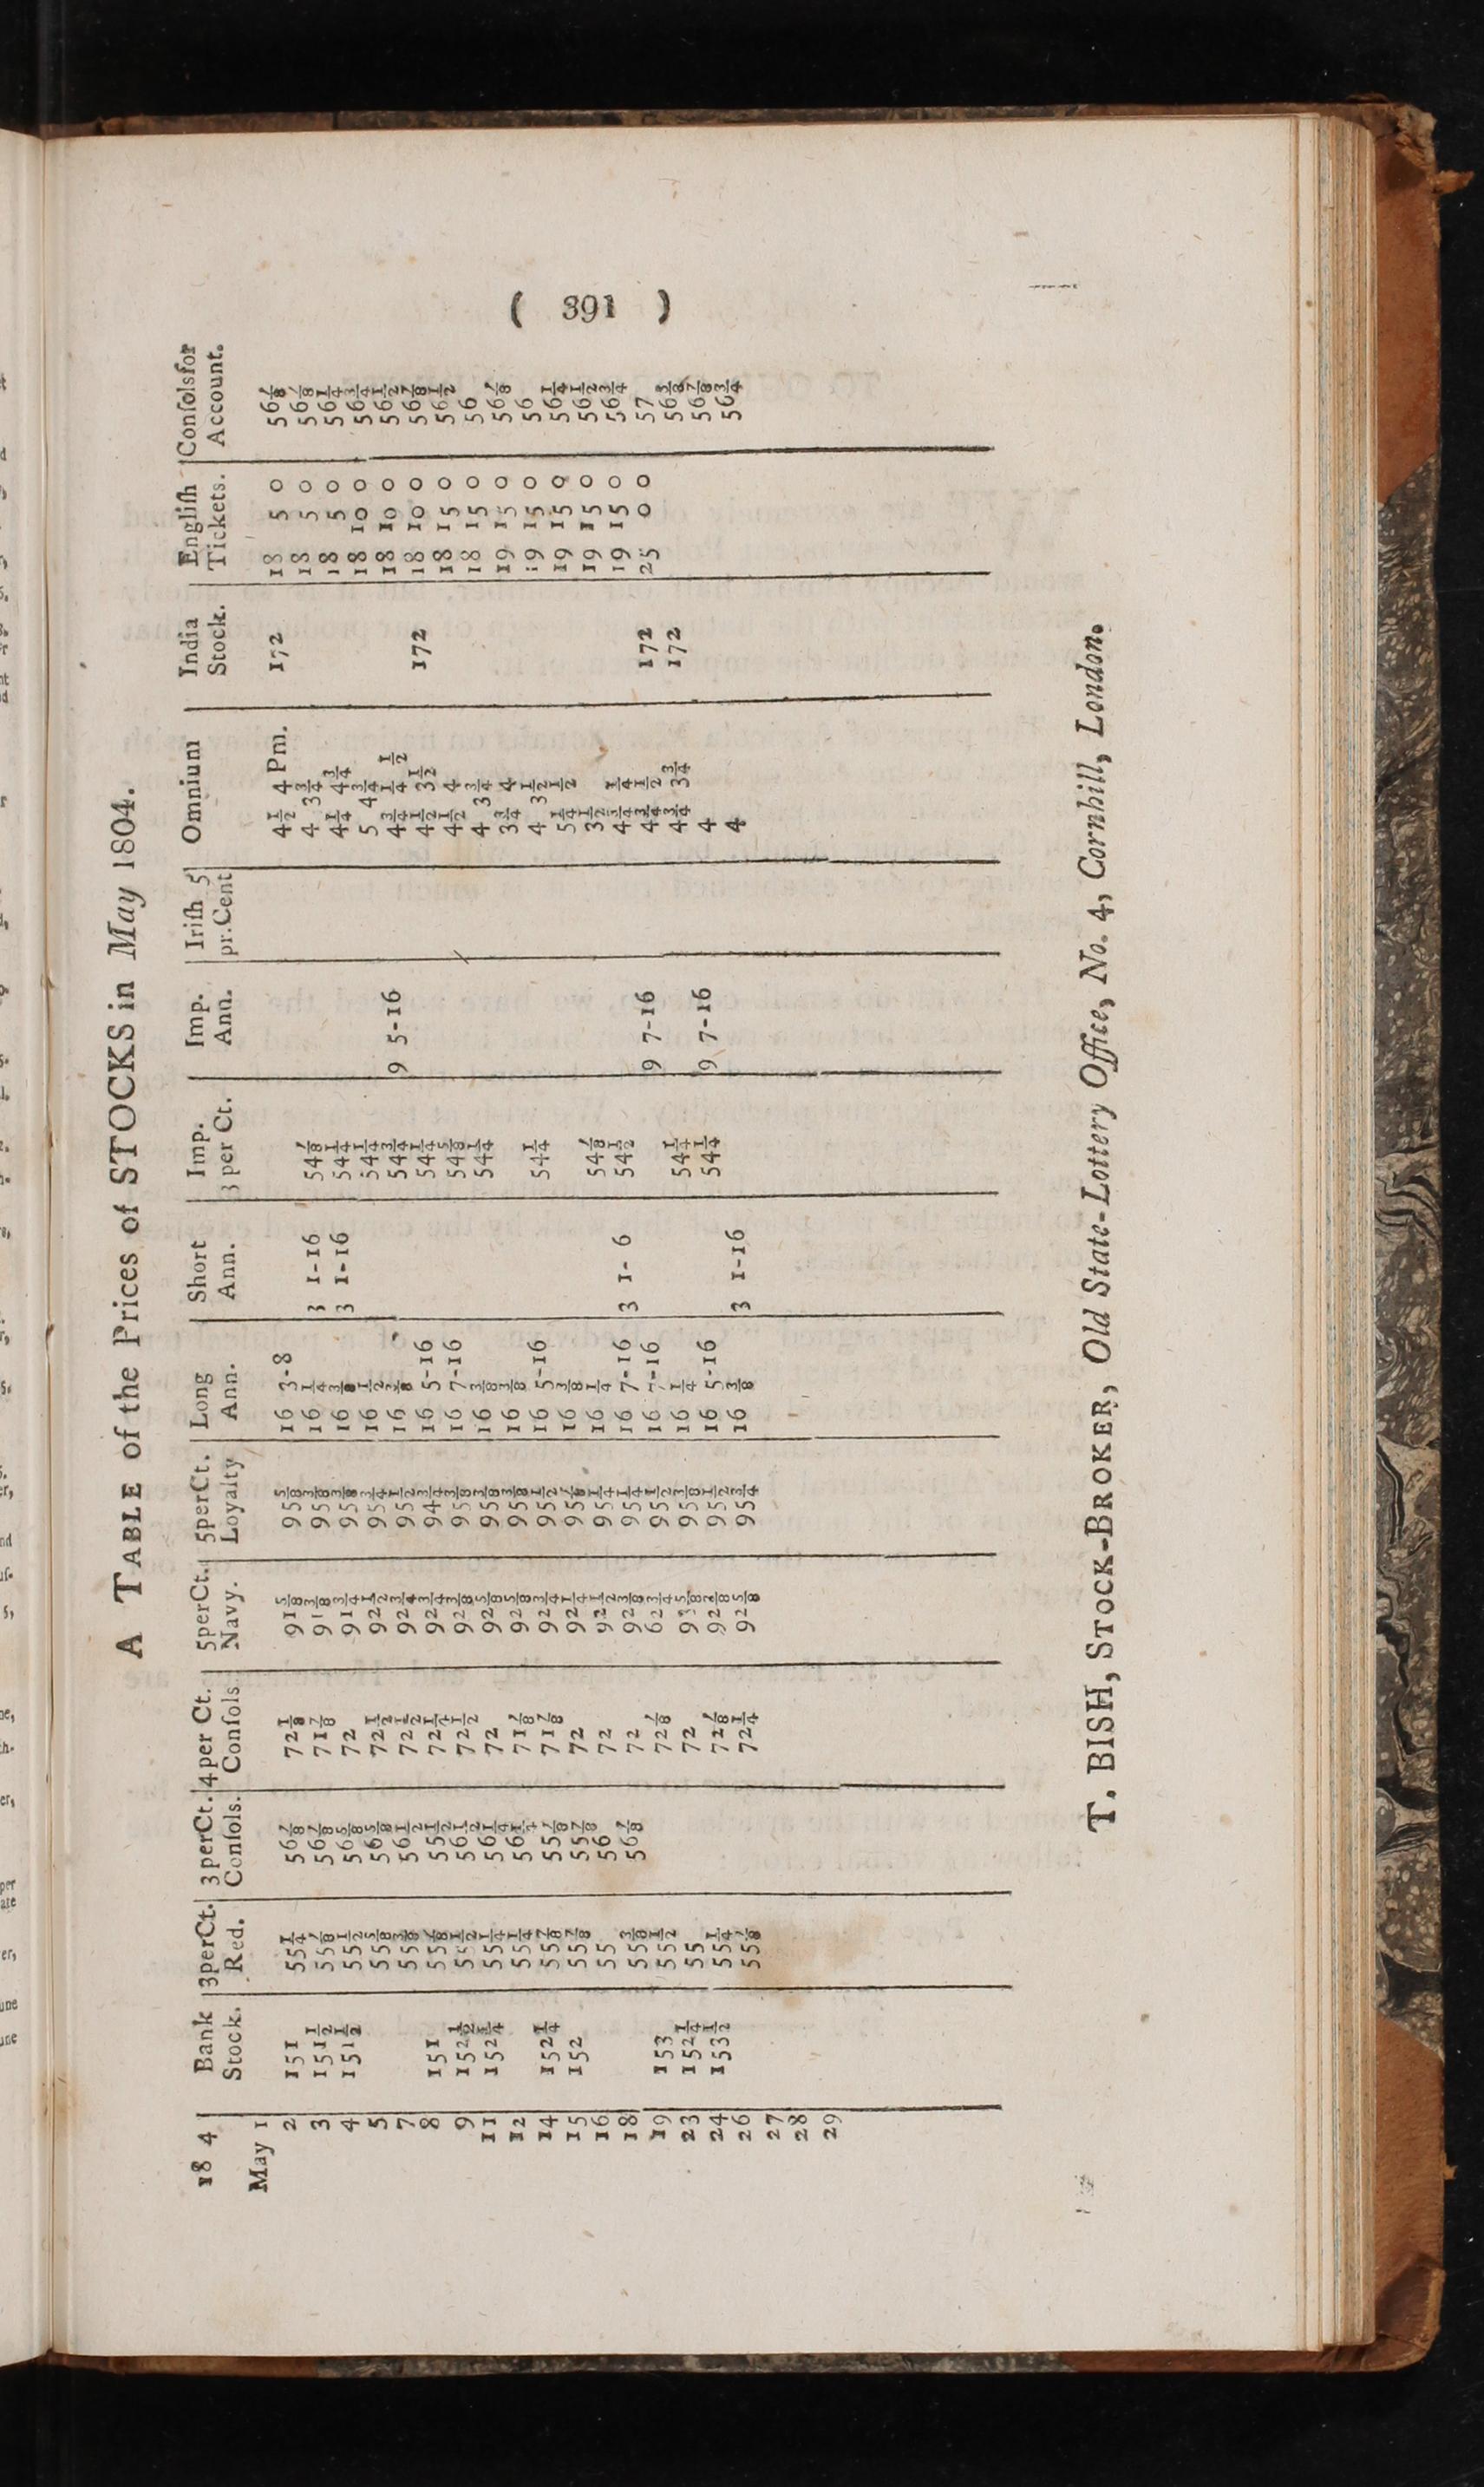 ( 391 )
A TABLE of the Prices of STOCKS in May 1804.
18 4 Bank Stock. 3perCt. Red. 3perCt. Conſols. 4per Ct. Conſols 5perCt. Navy. 5perCt. Loyalty Long Ann. Short Ann. Imp. 3per Ct. Imp. Ann. Iriſh 5 pr.Cent Omnium India Stock. Engliſh Tickets. Conſolsfor Account.
May 1
2 151 55¼ 56⅞ 72⅛ 91⅝ 95⅝ 16 3-8 4½ 4 Pm. 172 18 5 0 56⅞
3 151½ 55⅞ 56⅞ 71⅞ 91⅜ 95⅜ 16 ¼ 3 1-16 54⅞ 4 3¾ 18 5 0 56⅞
4 151½ 55½ 56⅝ 72 91¾ 95⅜ 16 ⅜ 3 1-16 54¼ 4¼ 4¾ 18 5 0 56¼
5 55⅝ 56⅝ 72½ 92½ 95¾ 16 ½ 54¼ 5 4¾ 18 10 0 56¾
7 55⅜ 56½ 72½ 92¾ 95½ 16 ⅜ 54¾ 9 5-16 4¾ 4¼ ½ 18 10 0 56½
8 151 55⅞ 55½ 72¼ 92¾ 94¾ 16 5-16 54¼ 4½ 3½ 172 18 10 0 56⅞
9 152½ 55½ 56½ 72½ 92⅜ 95⅜ 16 7-16 54⅝ 4½ 4 18 15 0 56½
11 152¼ 55¼ 56¼ 72 92⅝ 95⅜ 16 ⅜ 54¼ 4 3¾ 18 15 0 56
12 55¼ 56¼ 71⅞ 92⅝ 95⅜ 16 ⅜ 3¾ 4 19 15 0 56⅞
14 152¼ 55⅞ 55⅞ 71⅞ 92¾ 95½ 16 5-16 54¼ 4 3½ 19 15 0 56
15 152 55⅞ 55⅞ 72 92¼ 95⅞ 16 ⅜ 5¼ ½ 19 15 0 56¼
16 55 56 72 92½ 95¼ 16 ¼ 54⅞ 3½ 19 15 0 56½
18 55⅜ 56⅞ 72 92⅜ 95¼ 16 7-16 3 1- 6 54½ 4¾ ¼ 19 15 0 56¾
19 153 55½ 72⅞ 62¾ 95½ 16 7-16 9 7-16 4¾ ½ 172 25 0 0 57
23 152¼ 55 72 93⅝ 95⅜ 16 ¼ 54¼ 4¾ 3¾ 172 56⅝
24 153½ 55¼ 72⅞ 92⅜ 95½ 16 5-16 54¼ 9 7-16 4 56⅞
26 55⅞ 72¼ 92⅝ 95¾ 16 ⅜ 3 1-16 4 56¾
27
28
29
T. BISH, STOCK-BROKER, Old State-Lottery Office, No. 4, Cornhill, London.